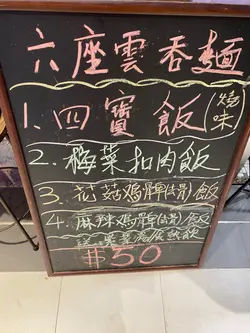 六座雲吞麵
1. 四寶飯(燒味)
2. 梅菜扣肉飯
3. 花菇鸡髀(骨)飯
4. 麻辣鸡髀(骨)飯
熱飲
$50